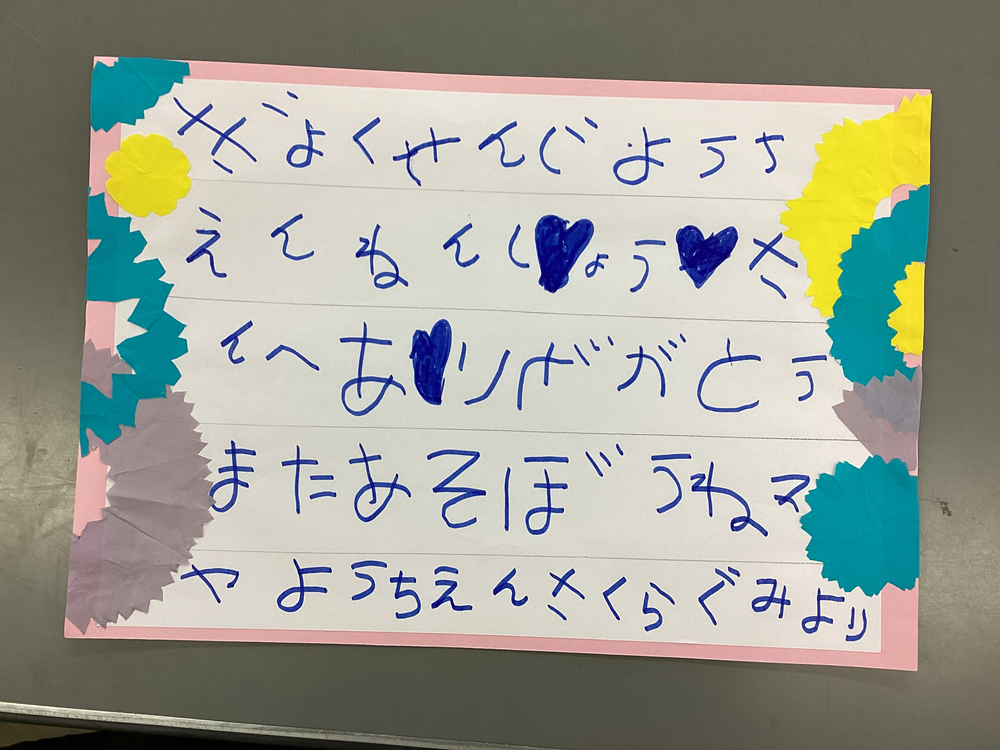 ぎよくせんじようち
えんねんしょうさ
んへありががとう
またあそぼうねマ
やようちえんさくらぐみより